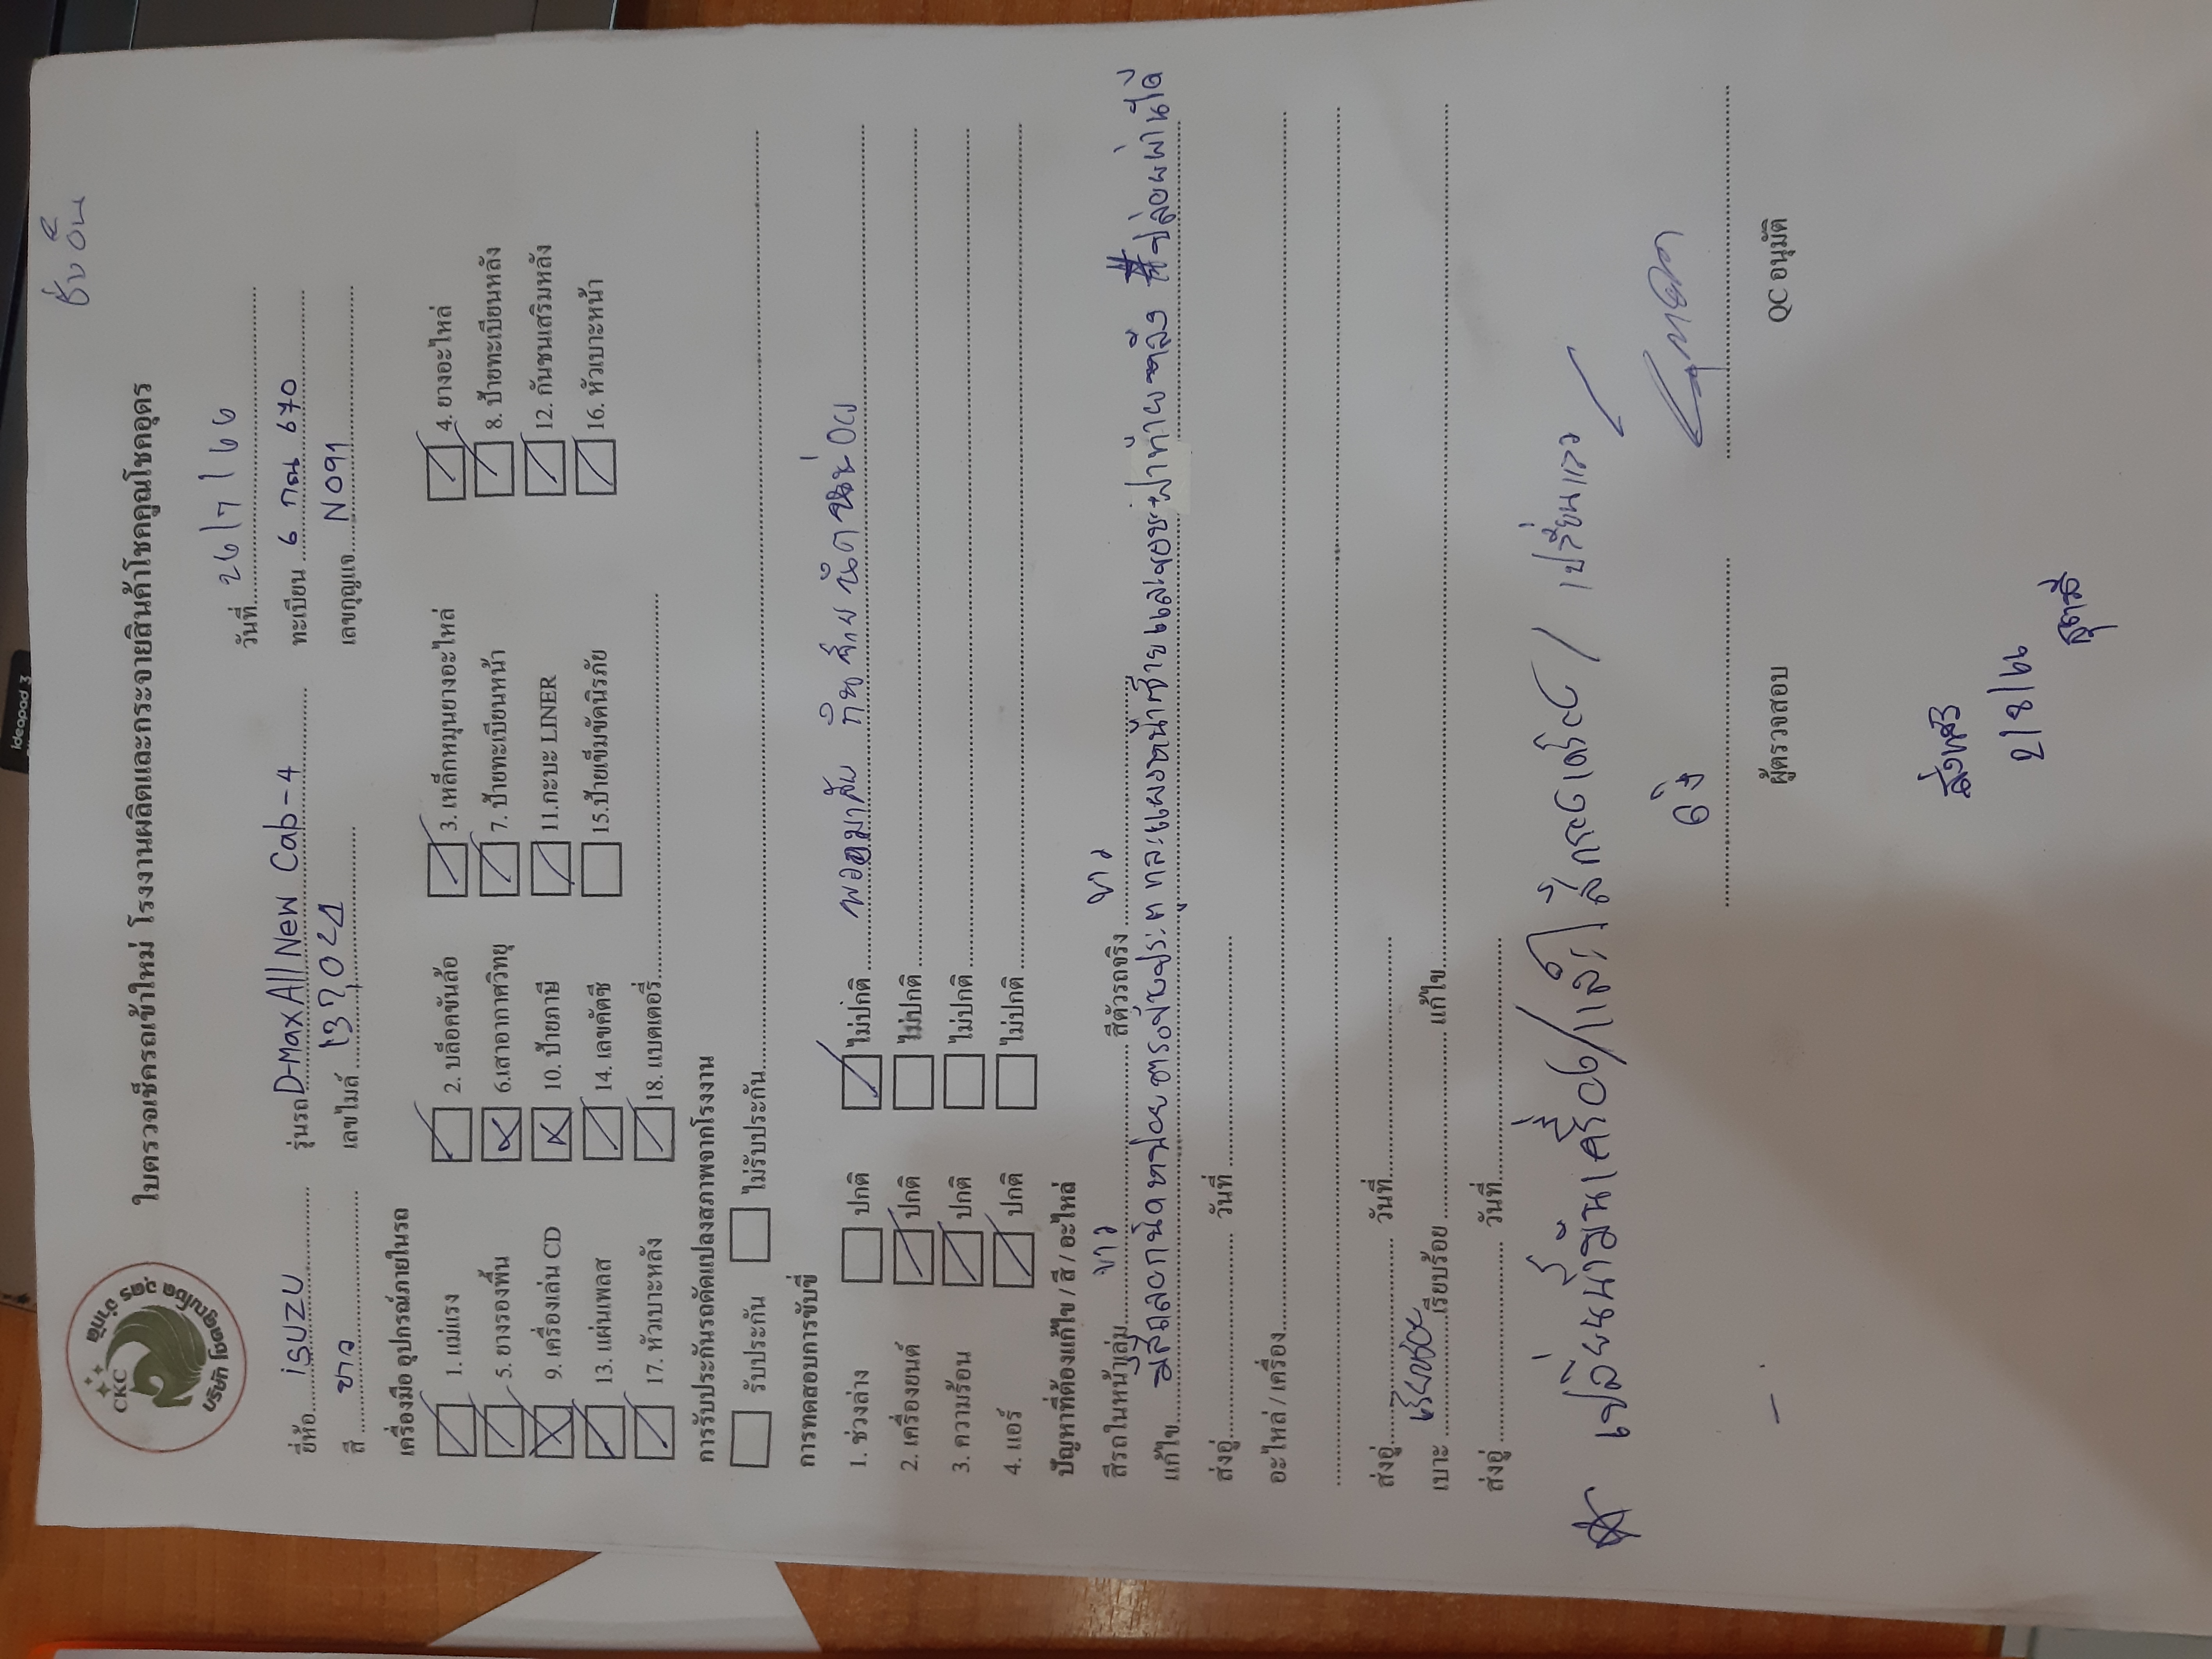 ชับอ๊บ
CKC
บริษัท โชคคูณโชค อุดร จำกัด
ใบตรวจเช็ครถเข้าใหม่ โรงงานผลิตและกระจายสินค้าโชคคูณโชคอุดร
วันที่ 26/7/66
ยี่ห้อ isuzu รุ่นรถ D-Max All New Cab-4 ทะเบียน 6 กณ 670
สี ขาว เลขไมล์ เลขกุญแจ N091
เครื่องมือ อุปกรณ์ภายในรถ
1. แม่แรง 2. บล็อคขันล้อ 3. เหล็กหมุนยางอะไหล่ 4. ยางอะไหล่
5. ยางรองพื้น 6.เสาอากาศวิทยุ 7. ป้ายทะเบียนหน้า 8. ป้ายทะเบียนหลัง
9. เครื่องเล่น CD 10. ป้ายภาษี 11.กะบะ LINER 12. กันชนเสริมหลัง
13. แผ่นเพลส 14. เลขคัตซี 15.ป้ายเข็มขัดนิรภัย 16. หัวเบาะหน้า
17. หัวเบาะหลัง 18. แบตเตอรี่
การรับประกันรถดัดแปลงสภาพจากโรงงาน
รับประกัน ไม่รับประกัน
การทดสอบการขับขี่
1. ช่วงล่าง ปกติ ไม่ปกติ พวงมาลัย กินซ้าย นิดหน่อย
2. เครื่องยนต์ ปกติ ไม่ปกติ
3. ความร้อน ปกติ ไม่ปกติ
4. แอร์ ปกติ ไม่ปกติ
ปัญหาที่ต้องแก้ไข / สี / อะไหล่
สีรถในหน้าเล่ม ขาว สีตัวรถจริง ขาว
แก้ไข มีสีถลอกนิดหน่อย ตรงขอบประตู และแผงหน้าซ้าย ฝาท้ายหลัง #ปล่อยผ่านได้
ส่งอู่ วันที่
อะไหล่ / เครื่อง
ส่งอู่ วันที่
เบาะ เรียบร้อย แก้ไข
ส่งอู่ วันที่
เปลี่ยนน้ำมันเครื่อง / เปลี่ยนแล้ว
ผู้ตรวจสอบ QC อนุมัติ
2/8/66
Ideapad 3